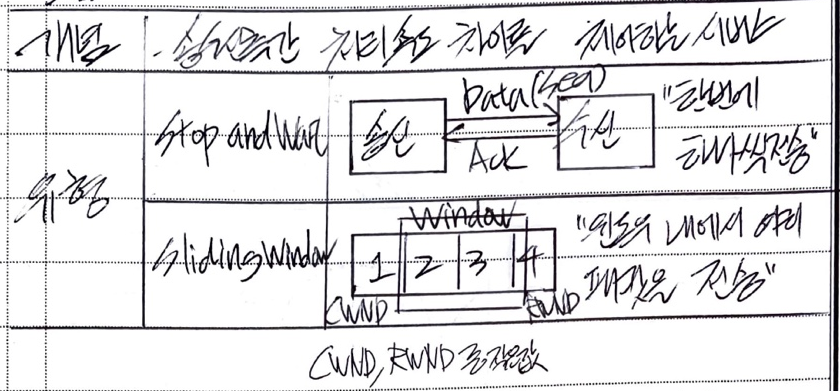 개념 송수신측간 처리속도 차이를 제어하는 기법
유형
Stop and Wait
송신
Data(Seq)
Ack
수신
"한번에
하나씩 전송"
Sliding Window
Window
1 2 3 4
CWND RWND
"윈도우 내에서 여러
패킷을 전송"
CWND, RWND 중 작은값